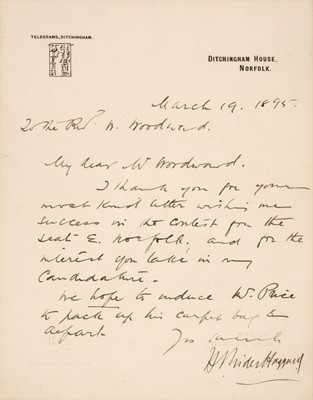 TELEGRAMS, DITCHINGHAM.
DITCHINGHAM HOUSE,
NORFOLK.
March 19. 1895.
To the Revd. W. Woodward.
My dear Mr Woodward.
I thank you for your
most kind letter wishing me
success in the contest for the
seat E. Norfolk, and for the
interest you take in my
Candidature.
We hope to induce Mr. Price
to pack up his carpet bag &
depart.
H Rider Haggard